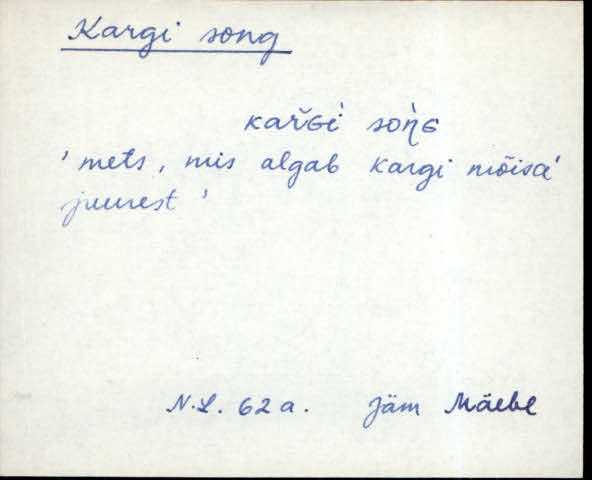 Kargi song
kar̆Gi̇̀ soǹ̥G
' mets, mis algab Kargi mõisa'
juurest '
N.L. 62 a. Jäm Mäebe